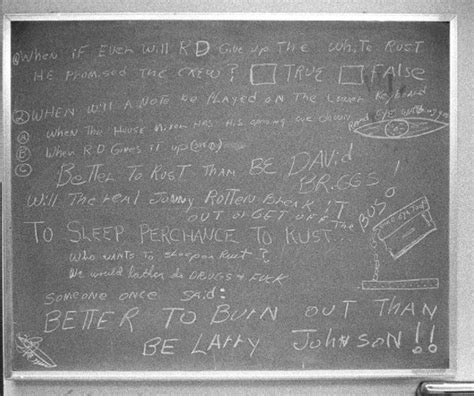 ① WHEN IF EVER WILL RD GIVE UP THE WHITE RUST
HE PROMISED THE CREW? □ TRUE □ FALSE
② WHEN WILL A NOTE BE PLAYED ON THE LOWER KEYBOARD
Ⓐ WHEN THE HOUSE MIXER HAS HIS EYE DOWN
Ⓑ WHEN R.D GIVES IT UP
Ⓒ
BETTER TO RUST THAN BE DAVID
BRIGGS!
WILL THE REAL JONNY ROTTEN BREAK IT
OUT OR GET OFF THE BUS
TO SLEEP PERCHANCE TO RUST
WHO WANTS TO SLEEP OR RUST?
WE WOULD RATHER DO DRUGS & FUCK
SOMEONE ONCE SAID:
BETTER TO BURN OUT THAN
BE LARRY JOHNSON!!